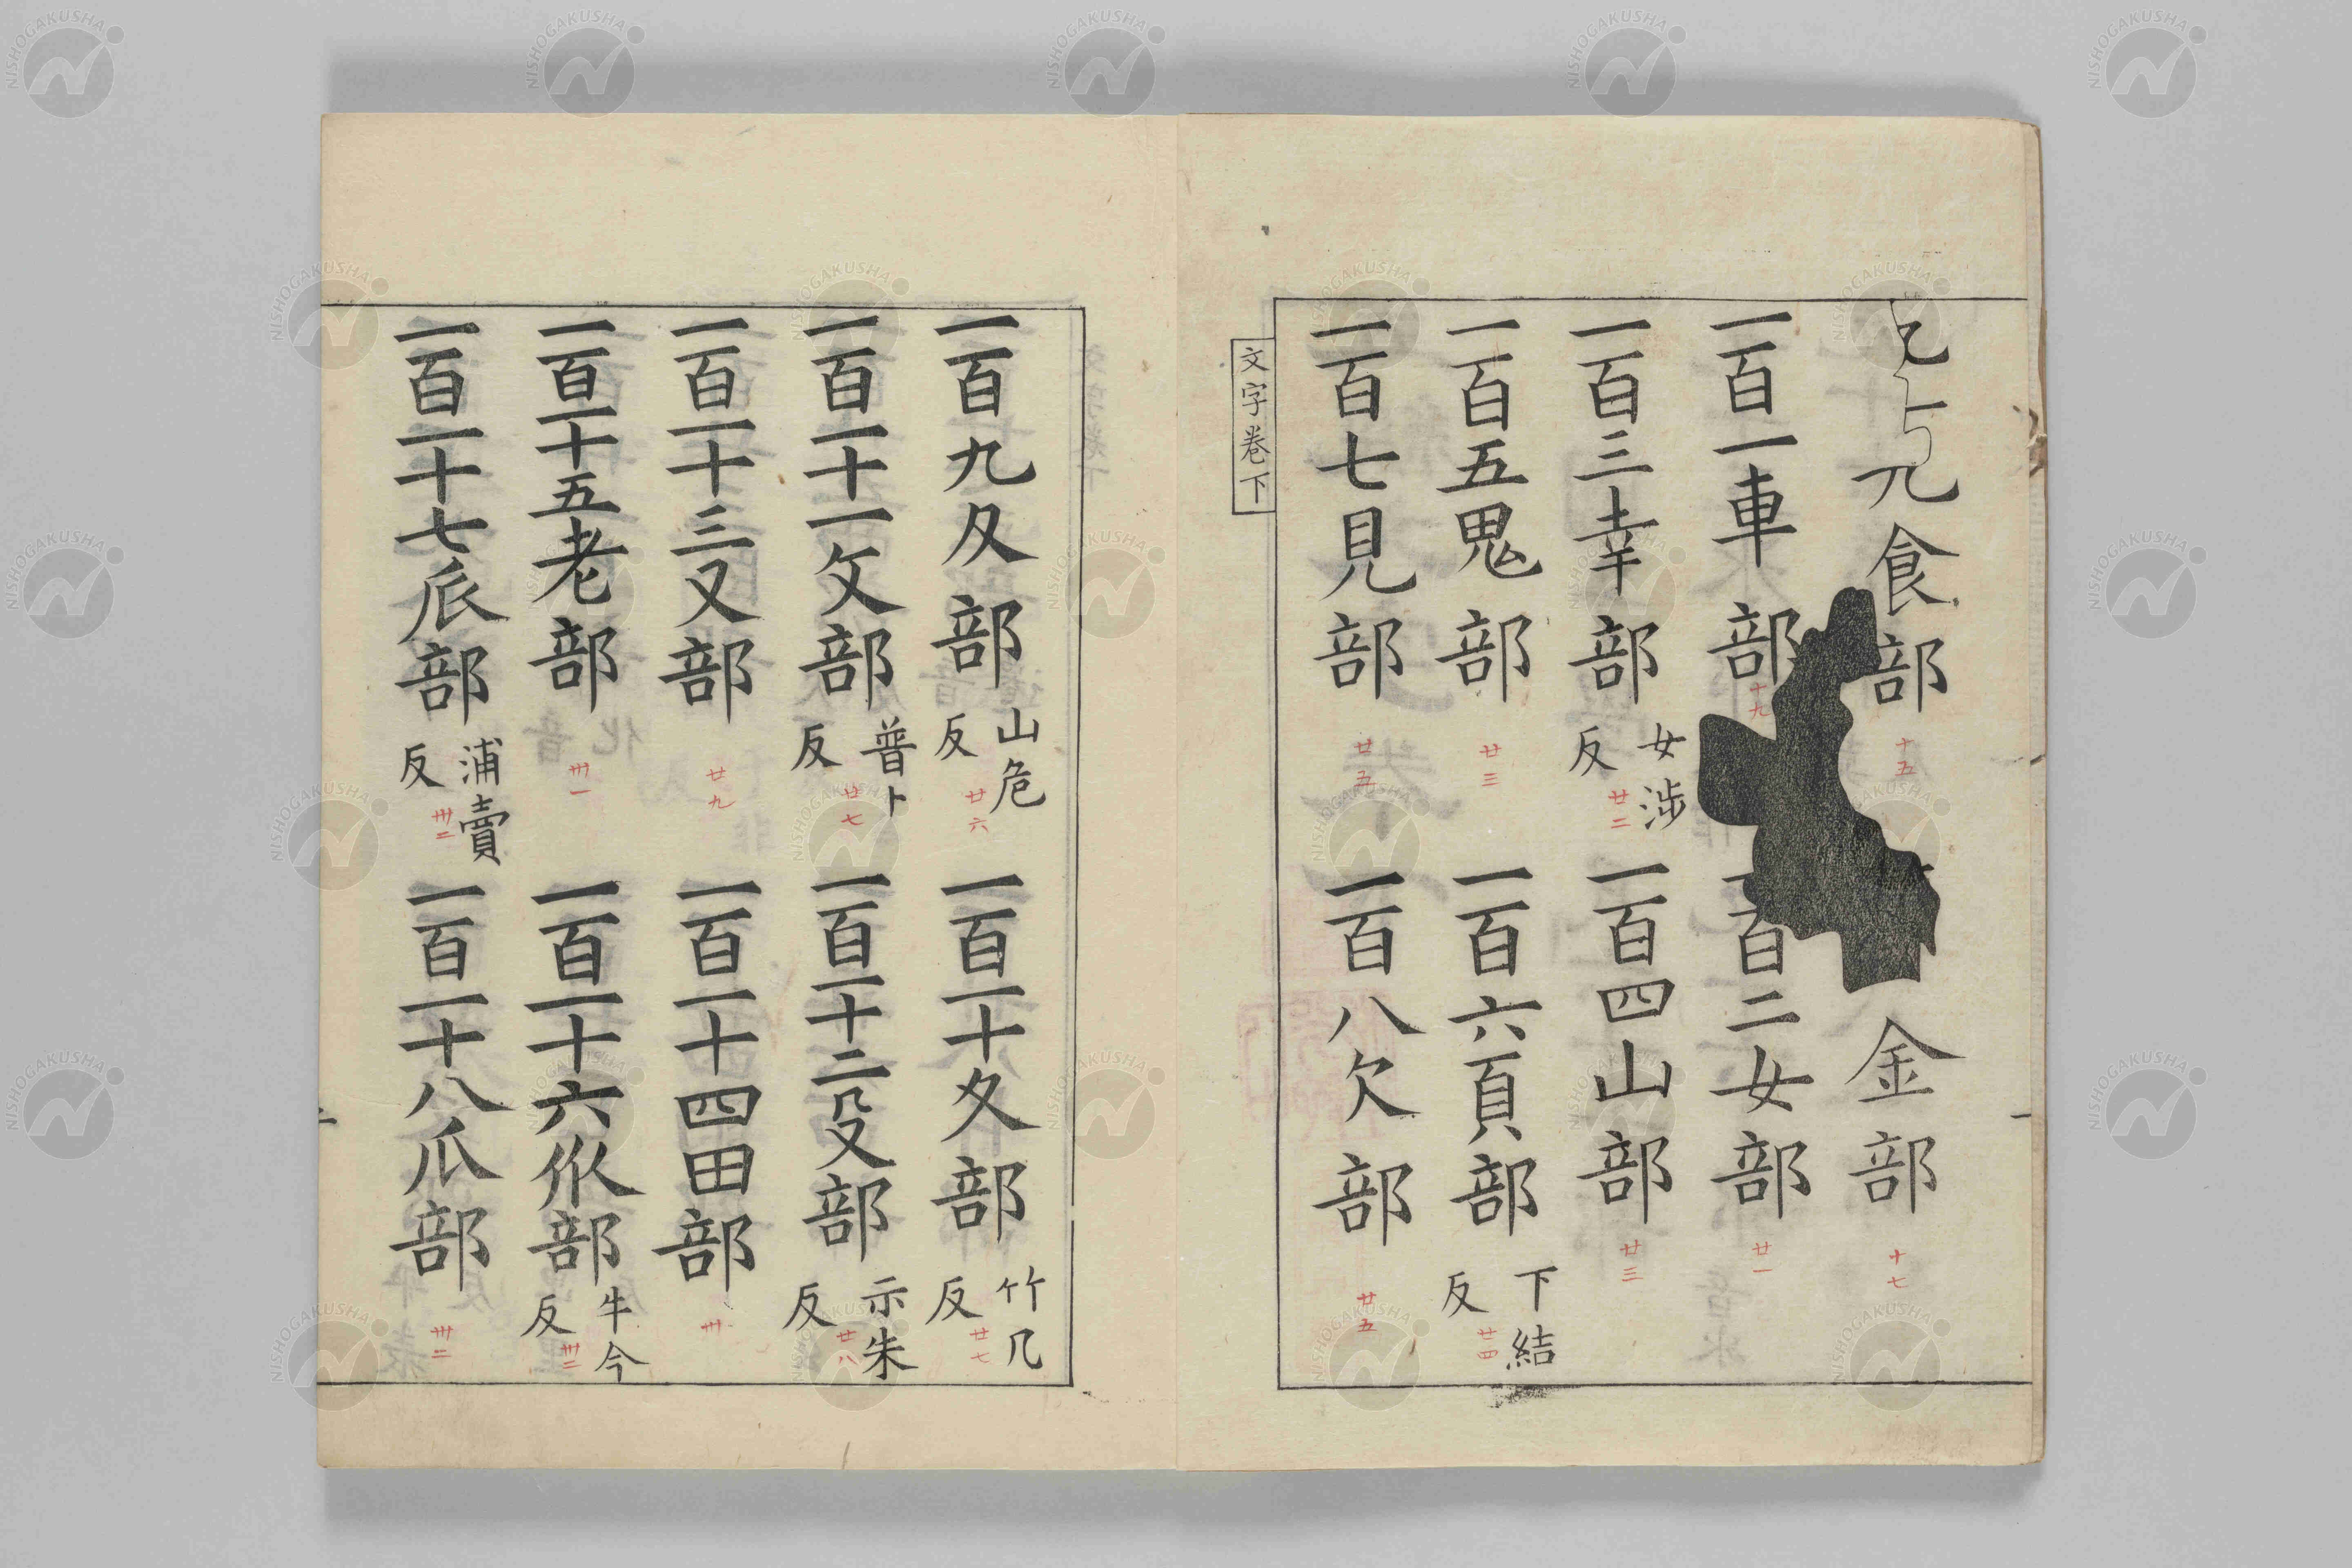 九食部 十五
金部 十七
一百一車部 十九
百二女部 廿一
一百三幸部 女涉反 廿二
一百四山部 廿三
一百五鬼部 廿三
一百六頁部 下結反 廿四
一百七見部 廿五
一百八欠部 廿五
文字卷下
一百九夂部 山危反 廿六
一百十夂部 竹几反 廿七
一百十一攵部 普卜反 廿七
一百十二殳部 示朱反 廿八
一百十三又部 廿九
一百十四田部 卅
一百十五老部 卅一
一百十六㐺部 牛今反 卅二
一百十七𠂢部 浦賣反 卅二
一百十八爪部 卅二
NISHOGAKUSHA